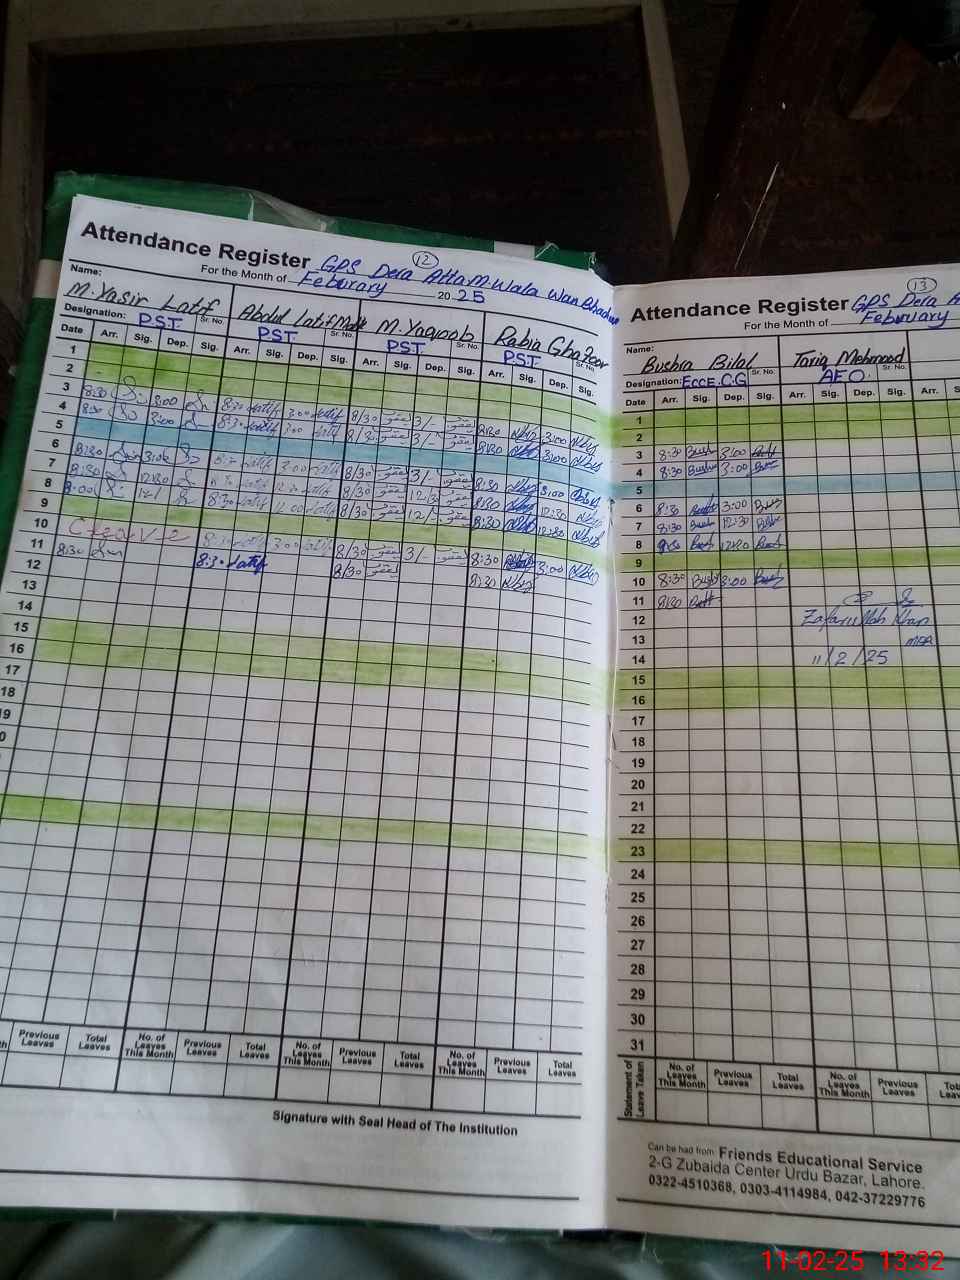 Attendance Register GPS Dera Atta M. Wala Wan Bhachran
12
For the Month of Feburary 2025
Name: M. Yasir Latif Abdul Latif Malik M. Yaqoob Rabia Ghafoor
Designation: P.S.T. Sr. No. PST Sr. No. P.S.T. Sr. No. P.S.T. Sr. No.
Date Arr. Sig. Dep. Sig. Arr. Sig. Dep. Sig. Arr. Sig. Dep. Sig. Arr. Sig. Dep. Sig.
1
2
3 8:30 3:00 8:30 latif 3:00 latif 8/30 یعقوب 3/- یعقوب 8:30 3:00
4 8:30 3:00 8:30 latif 3:00 latif 8/30 یعقوب 3/- یعقوب 8:30 3:00
5
6 8:30 3:00 8:30 latif 3:00 latif 8/30 یعقوب 3/- یعقوب 8:30 3:00
7 8:30 12:30 8:30 latif 12:30 latif 8/30 یعقوب 12/30 یعقوب 8:30 12:30
8 8:30 latif 12:00 latif 8/30 یعقوب 12/- یعقوب 8:30 12:30
9
10 8:30 latif 3:00 latif 8/30 یعقوب 3/- یعقوب 8:30 3:00
11 8:30 8:30 latif 8/30 یعقوب 8:30
12
13
14
15
16
17
18
19
Previous Leaves Total Leaves No. of Leaves This Month Previous Leaves Total Leaves No. of Leaves This Month Previous Leaves Total Leaves No. of Leaves This Month Previous Leaves Total Leaves
Signature with Seal Head of The Institution
13
Attendance Register GPS Dera A
For the Month of February
Name: Bushra Bilal Tariq Mehmood
Designation: ECCE.C.G Sr. No. AEO. Sr. No.
Date Arr. Sig. Dep. Sig. Arr. Sig. Dep. Sig. Arr. Sig.
1
2
3 8:30 Bush 3:00
4 8:30 Bush 3:00
5
6 8:30 3:00
7 8:30 Bush 12:30
8 8:30 12:30
9
10 8:30 Bush 3:00
11 8:30
12 Zafarullah Khan
13 MEA
14 11/2/25
15
16
17
18
19
20
21
22
23
24
25
26
27
28
29
30
31
Statement of Leave Taken
No. of Leaves This Month Previous Leaves Total Leaves No. of Leaves This Month Previous Leaves
Can be had from: Friends Educational Service
2-G Zubaida Center Urdu Bazar, Lahore.
0322-4510368, 0303-4114984, 042-37229776
11-02-25 13:32